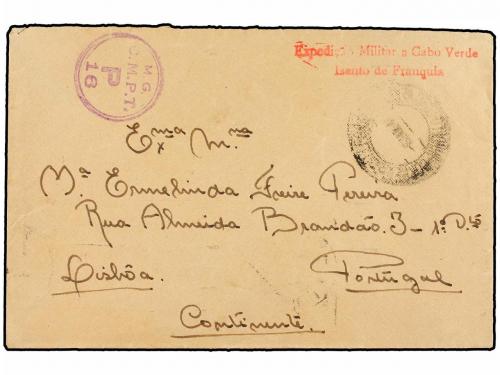 M.G.
C.M.P.T.
P
16
Expedição Militar a Cabo Verde
Isento de Franquia
Exma Mna
Mª Ermelinda Freire Pereira
Rua Almeida Brandão. 3 - 1º D.to
Lisbôa.
Portugal
Continente.